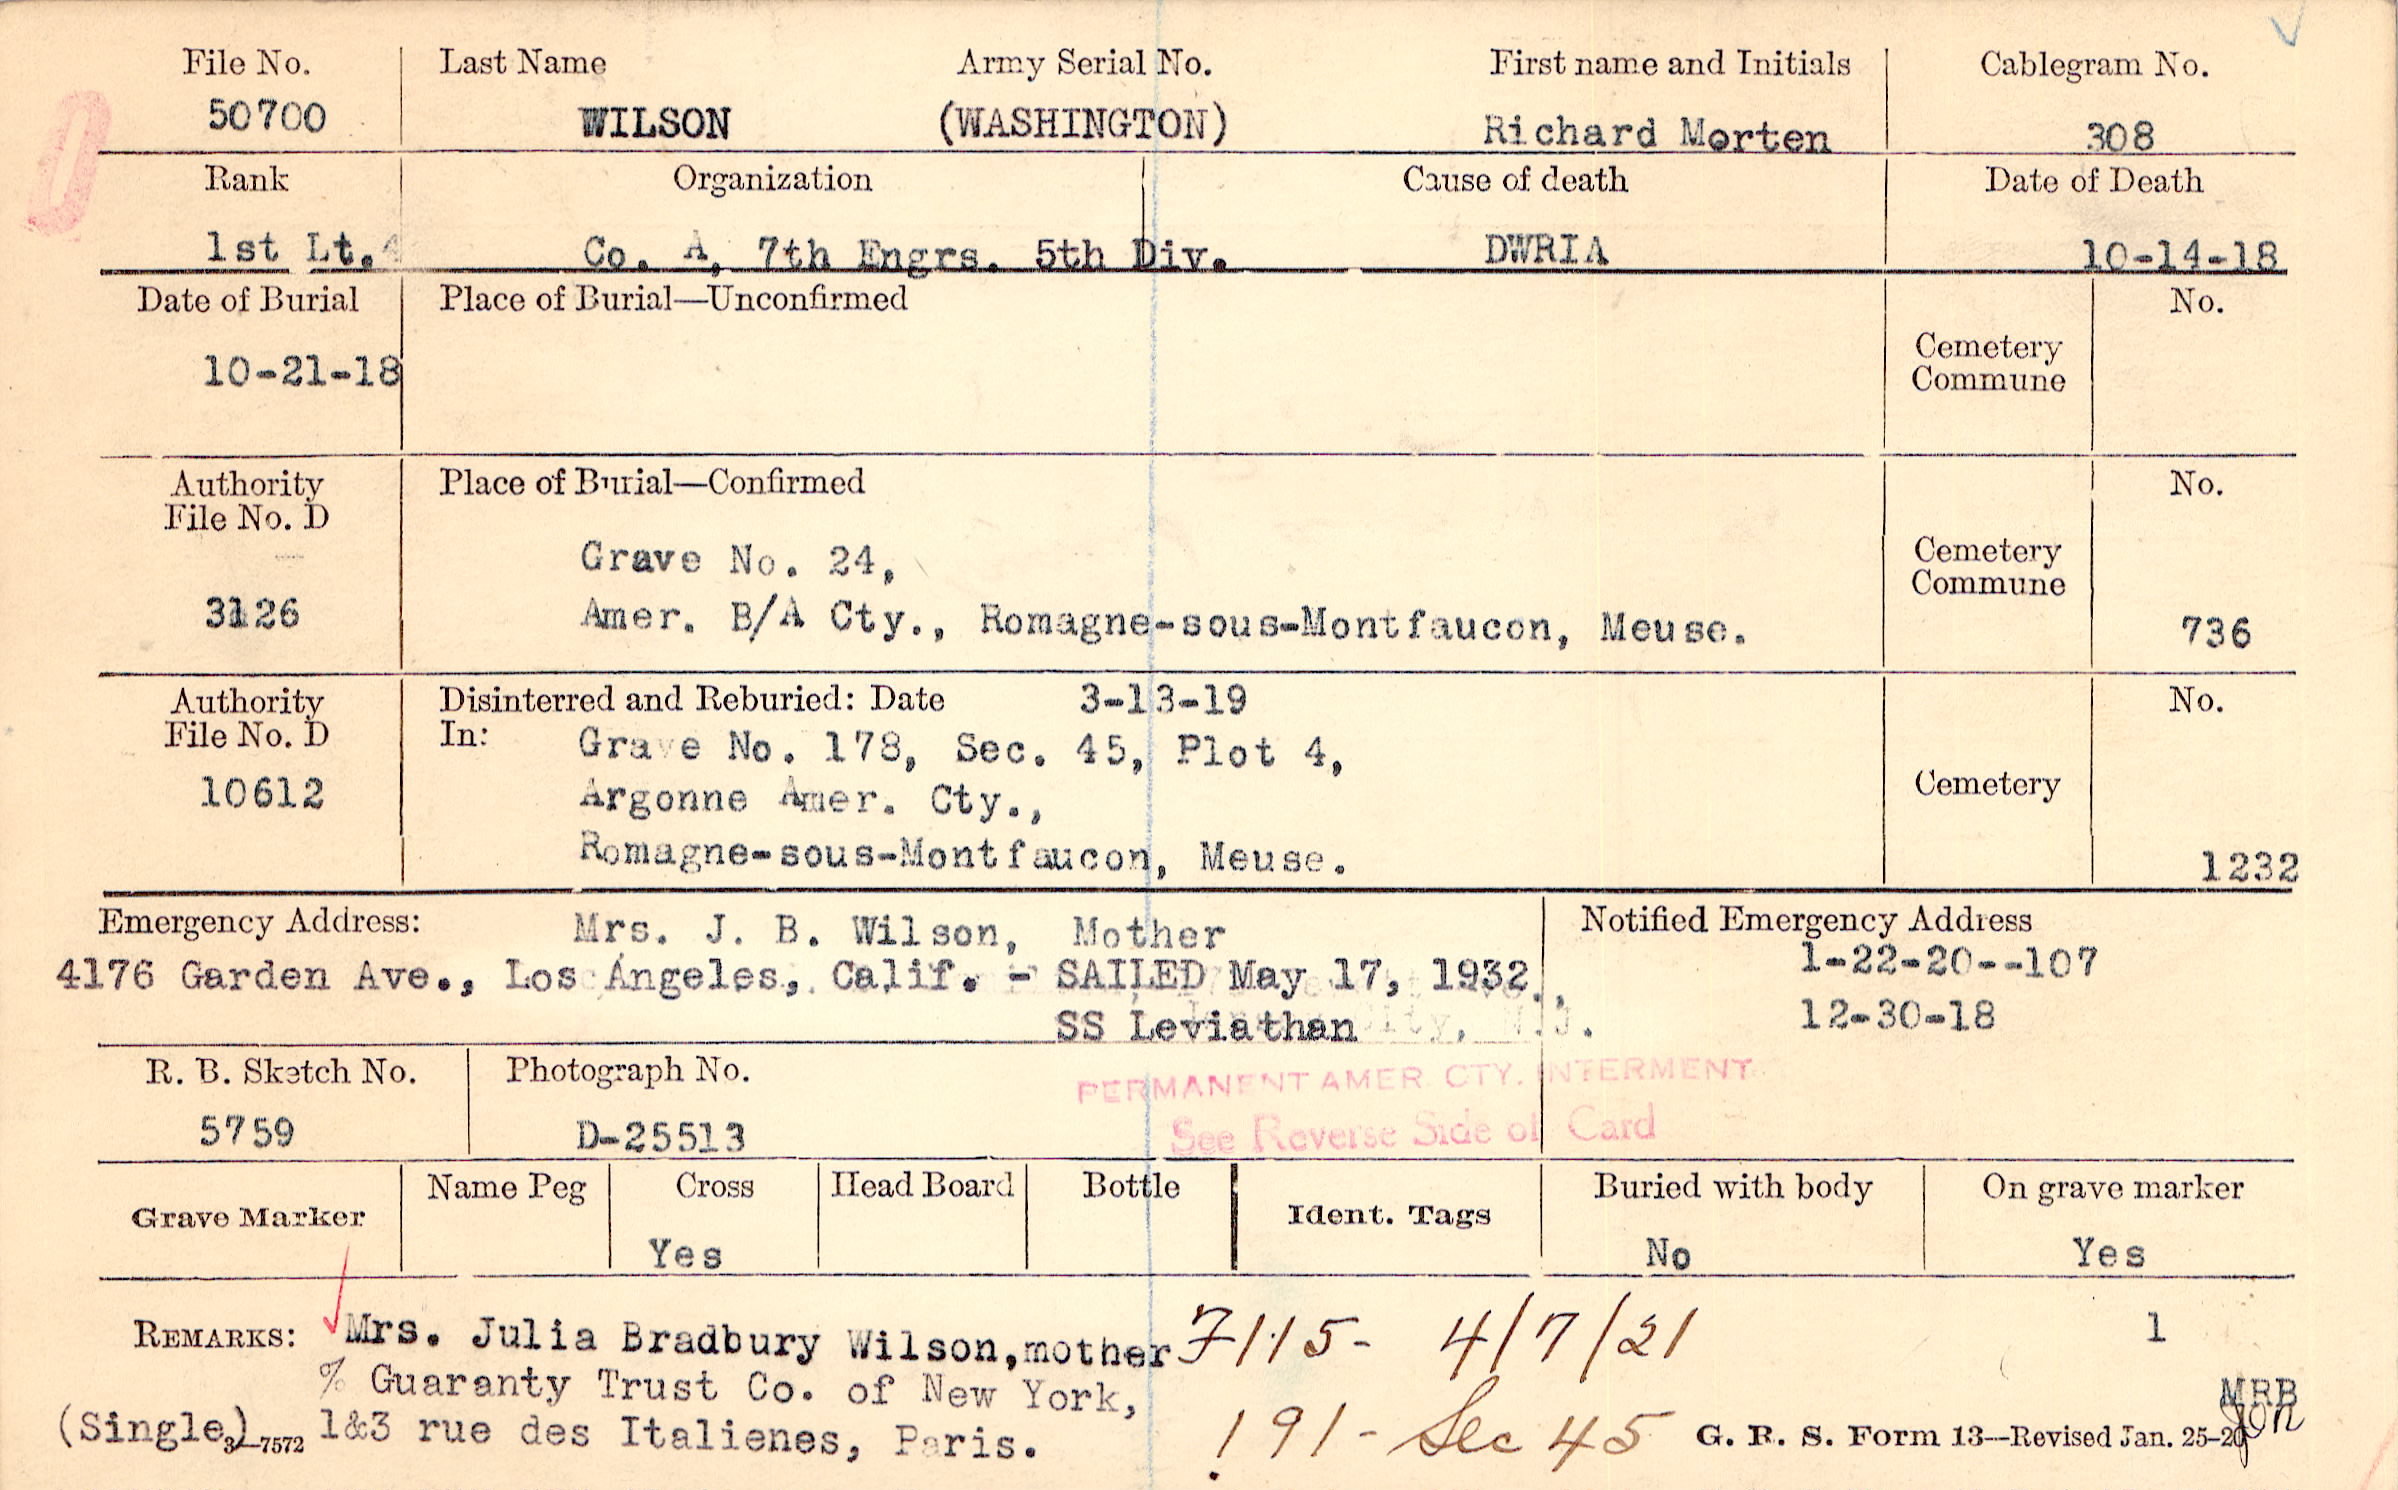 File No. Last Name Army Serial No. First name and Initials Cablegram No.
50700 WILSON (WASHINGTON) Richard Morten 308
Rank Organization Cause of death Date of Death
1st Lt. Co. A, 7th Engrs. 5th Div. DWRIA 10-14-18
Date of Burial Place of Burial—Unconfirmed No.
Cemetery
Commune
10-21-18
Authority Place of Burial—Confirmed No.
File No. D
Grave No. 24, Cemetery
Commune
3126 Amer. B/A Cty., Romagne-sous-Montfaucon, Meuse. 736
Authority Disinterred and Reburied: Date 3-13-19 No.
File No. D In: Grave No. 178, Sec. 45, Plot 4,
10612 Argonne Amer. Cty., Cemetery
Romagne-sous-Montfaucon, Meuse. 1232
Emergency Address: Mrs. J. B. Wilson, Mother Notified Emergency Address
4176 Garden Ave., Los Angeles, Calif. - SAILED May 17, 1932 1-22-20--107
SS Leviathan 12-30-18
R. B. Sketch No. Photograph No. PERMANENT AMER. CTY. INTERMENT
5759 D-25513 See Reverse Side of Card
Grave Marker Name Peg Cross Head Board Bottle Ident. Tags Buried with body On grave marker
Yes No Yes
REMARKS: Mrs. Julia Bradbury Wilson, mother 7115- 4/7/21 1
% Guaranty Trust Co. of New York, MRB
(Single) 3—7572 1&3 rue des Italienes, Paris. 191- Sec 45 G. R. S. Form 13—Revised Jan. 25-20